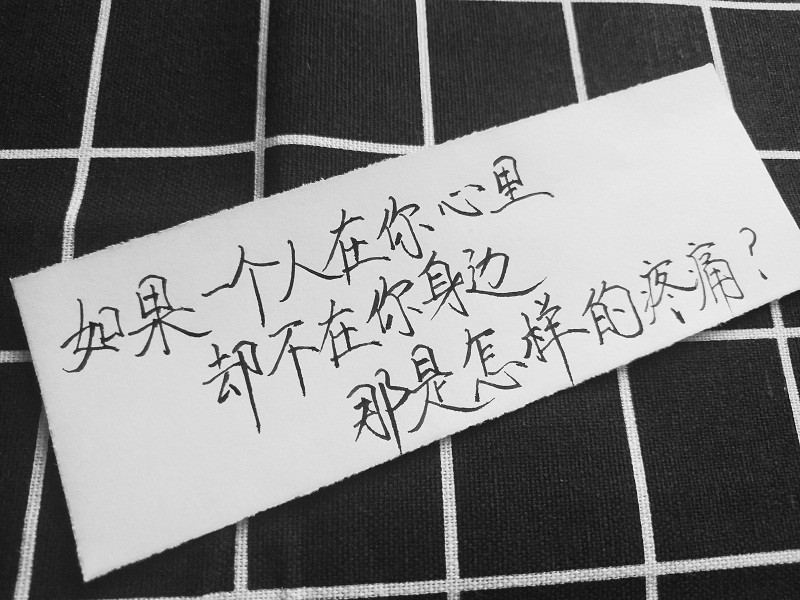 如果一个人在你心里
却不在你身边
那是怎样的疼痛？